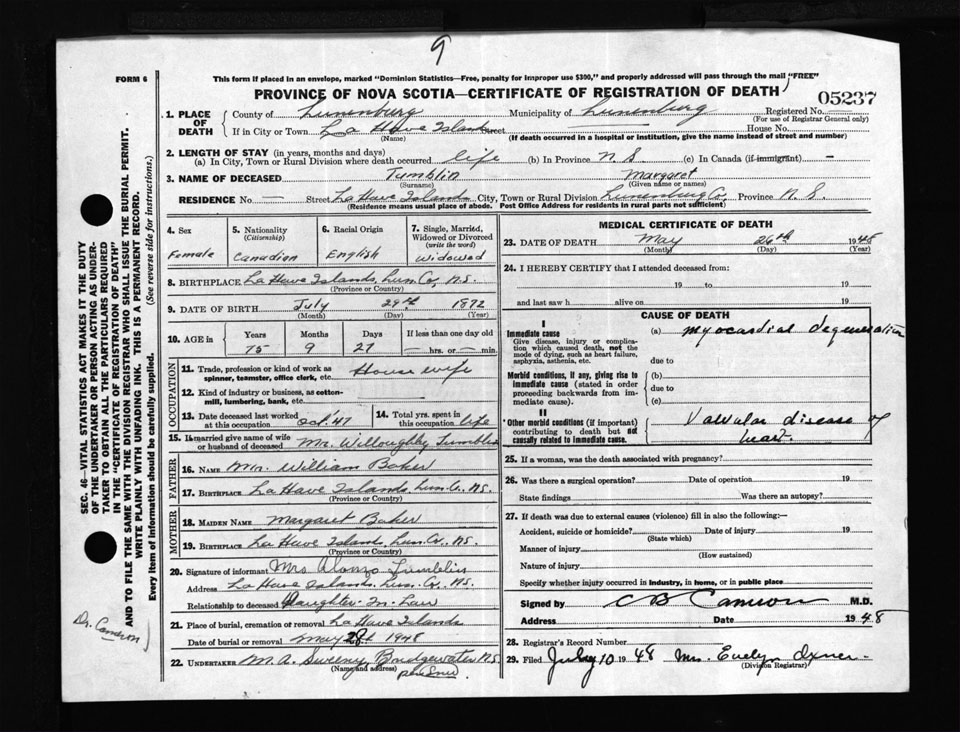 9
FORM 6
This form if placed in an envelope, marked "Dominion Statistics—Free, penalty for improper use $300," and properly addressed will pass through the mail "FREE"
PROVINCE OF NOVA SCOTIA—CERTIFICATE OF REGISTRATION OF DEATH
05237
1. PLACE OF DEATH County of Lunenburg Municipality of Lunenburg Registered No.
(For use of Registrar General only)
If in City or Town La Have Islands Street House No.
(Name) (If death occurred in a hospital or institution, give the name instead of street and number)
2. LENGTH OF STAY (in years, months and days)
(a) In City, Town or Rural Division where death occurred life (b) In Province N.S. (c) In Canada (if immigrant) —
3. NAME OF DECEASED Tumblin Margaret
(Surname) (Given name or names)
RESIDENCE No — Street La Have Islands City, Town or Rural Division Lunenburg Co. Province N.S.
(Residence means usual place of abode. Post Office Address for residents in rural parts not sufficient)
4. Sex 5. Nationality 6. Racial Origin 7. Single, Married, Widowed or Divorced
(Citizenship) (write the word)
Female Canadian English Widowed
8. BIRTHPLACE La Have Islands, Lun. Co, N.S.
(Province or Country)
9. DATE OF BIRTH July 29th 1872
(Month) (Day) (Year)
10. AGE in Years Months Days If less than one day old
75 9 27 — hrs. or — min.
OCCUPATION
11. Trade, profession or kind of work as spinner, teamster, office clerk, etc. House wife
12. Kind of industry or business, as cotton-mill, lumbering, bank, etc
13. Date deceased last worked at this occupation Oct. 47 14. Total yrs. spent in this occupation life
15. If married give name of wife or husband of deceased Mr. Willoughby Tumblin
FATHER
16. NAME Mr. William Baker
17. BIRTHPLACE La Have Islands, Lun. Co. N.S.
(Province or Country)
MOTHER
18. MAIDEN NAME Margaret Baker
19. BIRTHPLACE La Have Islands, Lun. Co, N.S.
(Province or Country)
20. Signature of informant Mrs Alonzo Tumblin
Address La Have Islands, Lun. Co, N.S.
Relationship to deceased Daughter-In-Law
21. Place of burial, cremation or removal La Have Islands
Date of burial or removal May 28th 1948
22. UNDERTAKER M. A. Sweeny Bridgewater N.S.
(Name and address)
MEDICAL CERTIFICATE OF DEATH
23. DATE OF DEATH May 26th 1948
(Month) (Day) (Year)
24. I HEREBY CERTIFY that I attended deceased from:
19 to 19
and last saw h alive on 19
CAUSE OF DEATH
I
Immediate cause (a) myocardial degeneration
Give disease, injury or complication which caused death, not the mode of dying, such as heart failure, asphyxia, asthenia, etc.
due to
Morbid conditions, if any, giving rise to immediate cause (stated in order proceeding backwards from immediate cause).
(b)
due to
(c)
II
Other morbid conditions (if important) contributing to death but not causally related to immediate cause.
Valvular disease of
heart
25. If a woman, was the death associated with pregnancy?
26. Was there a surgical operation? Date of operation 19
State findings Was there an autopsy?
27. If death was due to external causes (violence) fill in also the following:—
Accident, suicide or homicide? Date of injury 19
(State which)
Manner of injury
(How sustained)
Nature of injury
Specify whether injury occurred in industry, in home, or in public place
Signed by C B Cameron M.D.
Address Date 1948
28. Registrar's Record Number
29. Filed July 10 1948 Mrs. Evelyn Oxner
(Division Registrar)
SEC. 46—VITAL STATISTICS ACT MAKES IT THE DUTY
OF THE UNDERTAKER OR PERSON ACTING AS UNDER-
TAKER TO OBTAIN ALL THE PARTICULARS REQUIRED
IN THE "CERTIFICATE OF REGISTRATION OF DEATH"
AND TO FILE THE SAME WITH THE DIVISION REGISTRAR WHO SHALL ISSUE THE BURIAL PERMIT.
WRITE PLAINLY WITH UNFADING INK. THIS IS A PERMANENT RECORD.
Every item of information should be carefully supplied. (See reverse side for instructions.)
Dr. Cameron